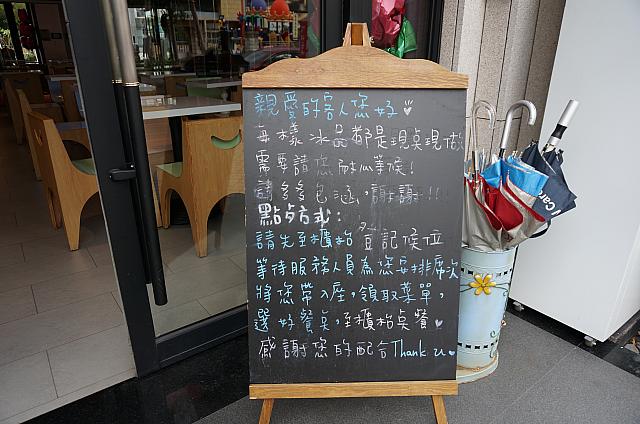 親愛的客人您好
每樣冰品都是現桌現做
需要請您耐心等候!
請多多包涵,謝謝!!
點夕方式:
請先至櫃枱登記候位
等待服務人員為您安排席次
將您帶入座,領取菜單,
選好餐桌,至櫃枱桌餐
感謝您的配合Thank u
Car